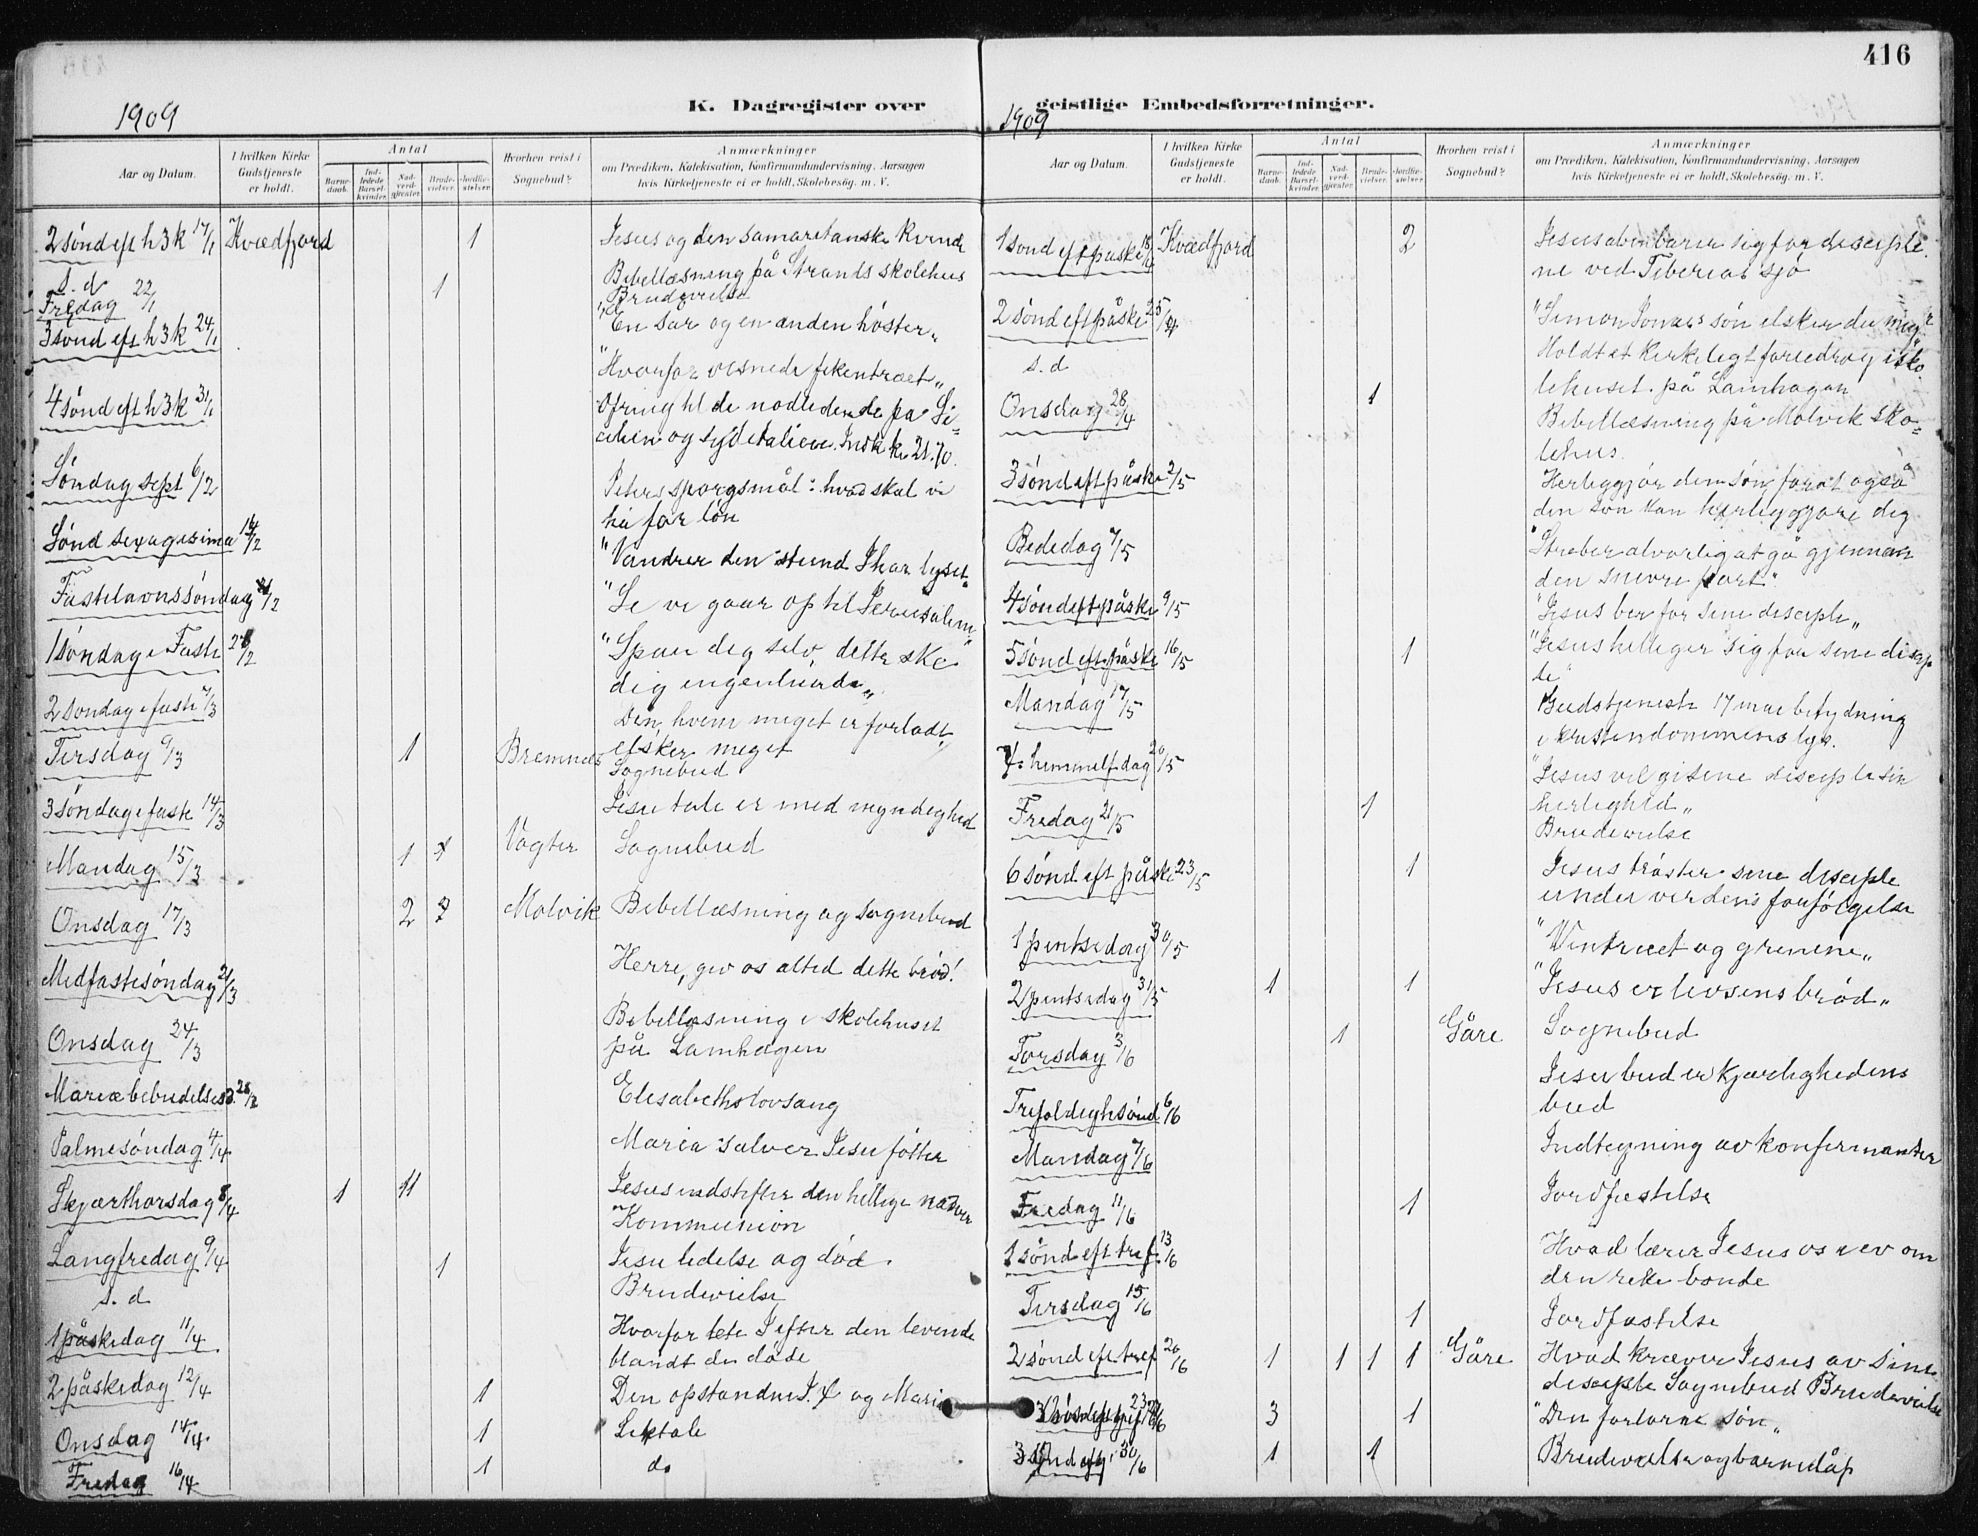 416
K. Dagregister over
1909
Aar og Datum.
I hvilken Kirke Gudstjeneste er holdt.
Antal
Barnedaab.
Indledede Barselkvinder.
Nadverdgjester.
Brudevielser.
Jordfæstelser.
Hvorhen reist i Sognebud?
Anmærkninger
om Prædiken, Katekisation, Konfirmandundervisning, Aarsagen
hvis Kirketjeneste ei er holdt, Skolebesøg. m. V.
2 sønd eft h3k 17/1 Kvædfjord 1 Jesus og den samaritanske kvinde
s. d Bibellæsning på Strands skolehus
Fredag 22/1 1 Brudevielse
3 sønd eft h3k 24/1 "En sår og en anden høster„
"Hvorfor visnede fikentræet„
4 sønd eft h3k 31/1 Ofring til de nødlidende på Si-
cilien og syditalien. Indk kr 21.70.
Søndag sept 6/2 Peters spørgsmål: hvad skal vi
ha for løn
Sønd sexagesima 14/2 "Vandrer den stund I har lyset„
Fastelavnssøndag 21/2 "Se vi gaar op til Jerusalem„
1 søndag i Faste 28/2 "Spar dig selv, dette ske
dig ingenlunde„
2 søndag i faste 7/3 Den, hvem meget er forladt,
elsker meget
Tirsdag 9/3 1 Bremnes Sognebud
3 søndag i faste 14/3 Jesu tale er med myndighed
Mandag 15/3 1 Vogter Sognebud
Onsdag 17/3 2 Molvik Bibellæsning og sognebud
Midfastesøndag 21/3 Herre, giv os altid dette brød!
Onsdag 24/3 Bibellæsning i skolehuset
på Lamhagen
Mariæbebudelsesd. Elisabeths lovsang
Palmesøndag 4/4 Maria salver Jesu føtter
Skjærthorsdag 8/4 1 11 Jesus indstifter den hellige nadver
Kommunion
Langfredag 9/4 Jesu lidelse og død.
s. d 1 Brudevielse
1 påskedag 11/4 Hvorfor lete I efter den levende
blandt de døde
2 påskedag 12/4 1 Den opstandne og Maria
Onsdag 14/4 1 Liktale
Fredag 16/4 1 do
geistlige Embedsforretninger.
1909
Aar og Datum.
I hvilken Kirke Gudstjeneste er holdt.
Antal
Barnedaab.
Indledede Barselkvinder.
Nadverdgjester.
Brudevielser.
Jordfæstelser.
Hvorhen reist i Sognebud?
Anmærkninger
om Prædiken, Katekisation, Konfirmandundervisning, Aarsagen
hvis Kirketjeneste ei er holdt, Skolebesøg. m. V.
1 sønd eft påske 18/4 Kvædfjord 2 Jesus åbenbarer sig for disciple-
ne ved Tiberias sjø
2 sønd eft påske 25/4 "Simon Jonas søn elsker du mig"
s. d Holdt et kirkeligt foredrag i sko-
lehuset på Lamhagan
Onsdag 28/4 1 Bibellæsning på Molvik sko-
lehus
3 sønd eft påske 2/5 Herliggjør din søn forat også
din søn kan herliggjøre dig
Bededag 7/5 "Stræber alvorlig at gå gjennem
den snevre port".
4 sønd eft påske 9/5 "Jesus ber for sine disciple„
5 sønd eft påske 16/5 1 "Jesus helliger sig for sine discip
le"
Mandag 17/5 Gudstjeneste 17 mai betydning
i kristendommens lys.
himmelf dag 20/5 "Jesus vil gi sine disciple sin
herlighed„
Fredag 21/5 1 Brudevielse
6 sønd eft påske 23/5 1 Jesus trøster sine disciple
under verdens forfølgelse
1 pintsedag 30/5 "Vintræet og grenene„
2 pintsedag 31/5 1 1 "Jesus er livsens brød„
Torsdag 3/6 1 Gåre Sognebud
Trefoldighsønd 6/6 Jesu bud er kjærlighedens
bud
Mandag 7/6 Indtegning av konfirmanter
Fredag 11/6 1 Jordfæstelse
1 sønd eft tref. 13/6 Hvad lærer Jesus os i ev om
den rike bonde
Tirsdag 15/6 1 Jordfæstelse
2 sønd eft tref 20/6 1 1 1 1 Gåre Hvad kræver Jesus av sine
disciple Sognebud Brudevielse
3 1 "Den fortorne søn„
30/6 1 1 Brudevielse og barnedåp